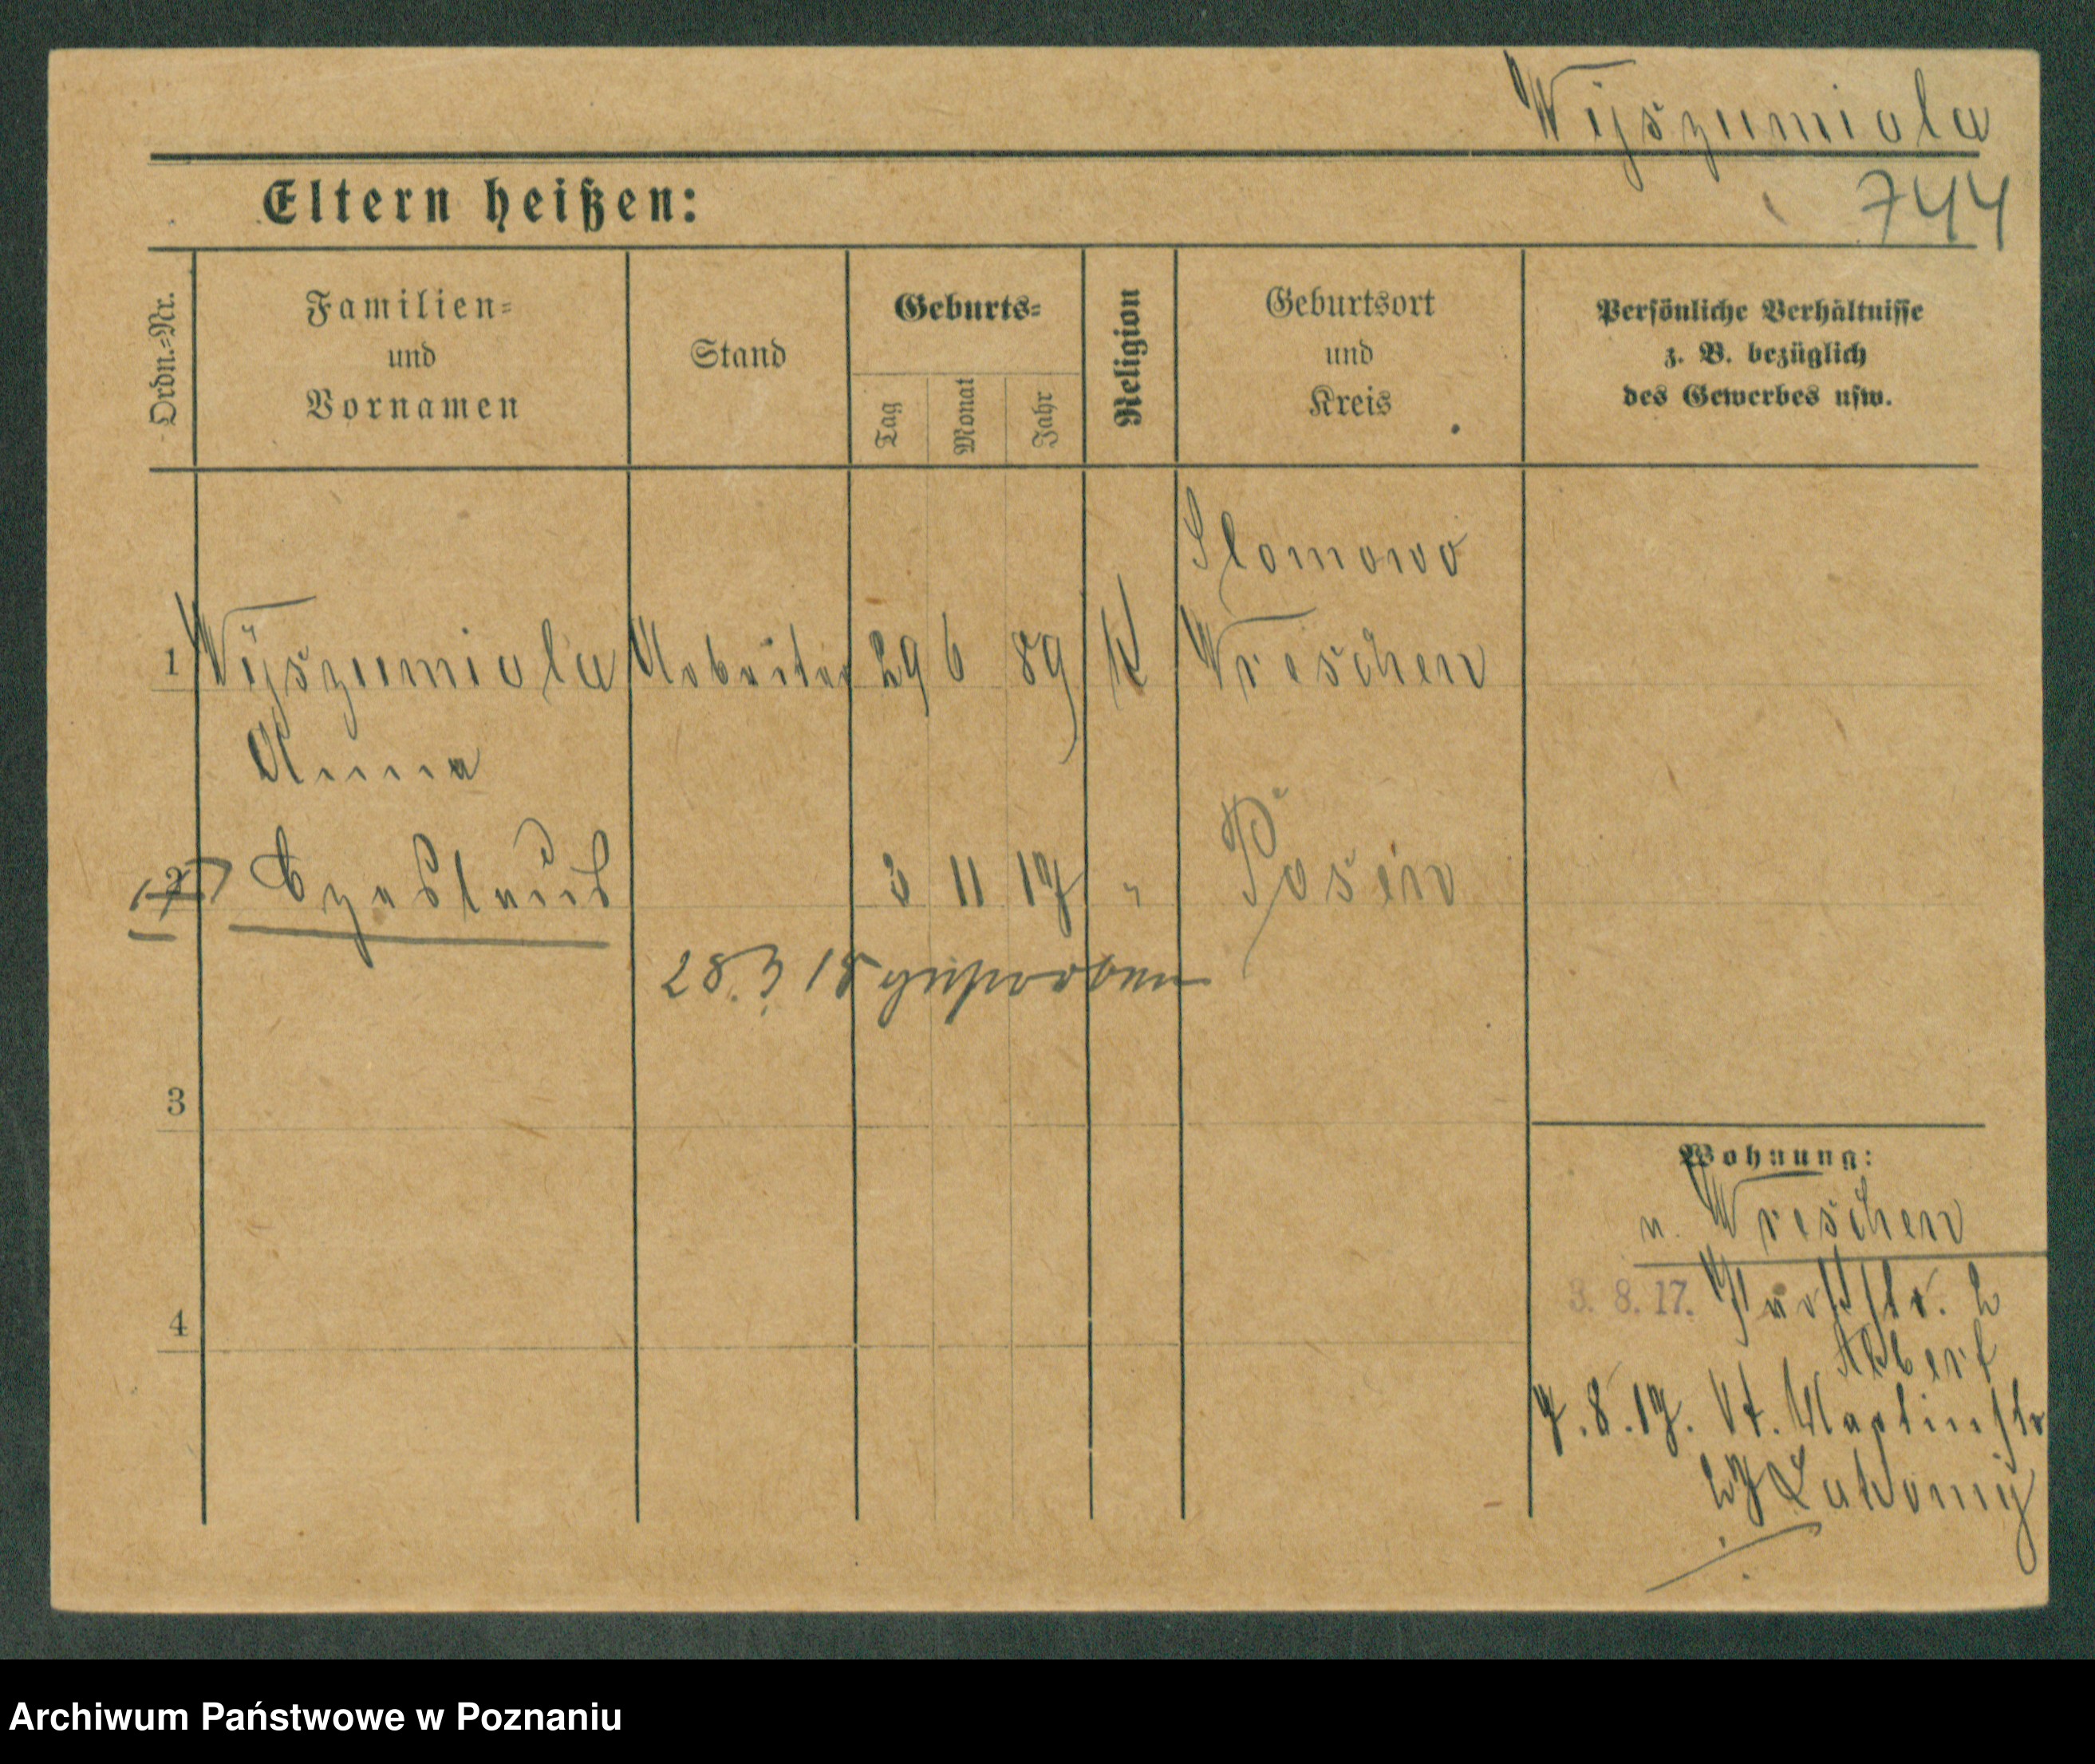 Wyszumiala
744
Eltern heißen:
Ordn.-Nr.
Familien-
und
Vornamen
Stand
Geburts-
Tag
Monat
Jahr
Religion
Geburtsort
und
Kreis
Persönliche Verhältnisse
z. B. bezüglich
des Gewerbes usw.
Slomowo
1 Wyszumiala Arbeiter 29 6 89 K Wreschen
Anna
2 Czeslaus 3 11 17 " Posen
28.3 18 gestorben
3
Wohnung:
n. Wreschen
3. 8. 17.
4
Albert
7.8.17. St. Martinstr
27
Archiwum Państwowe w Poznaniu